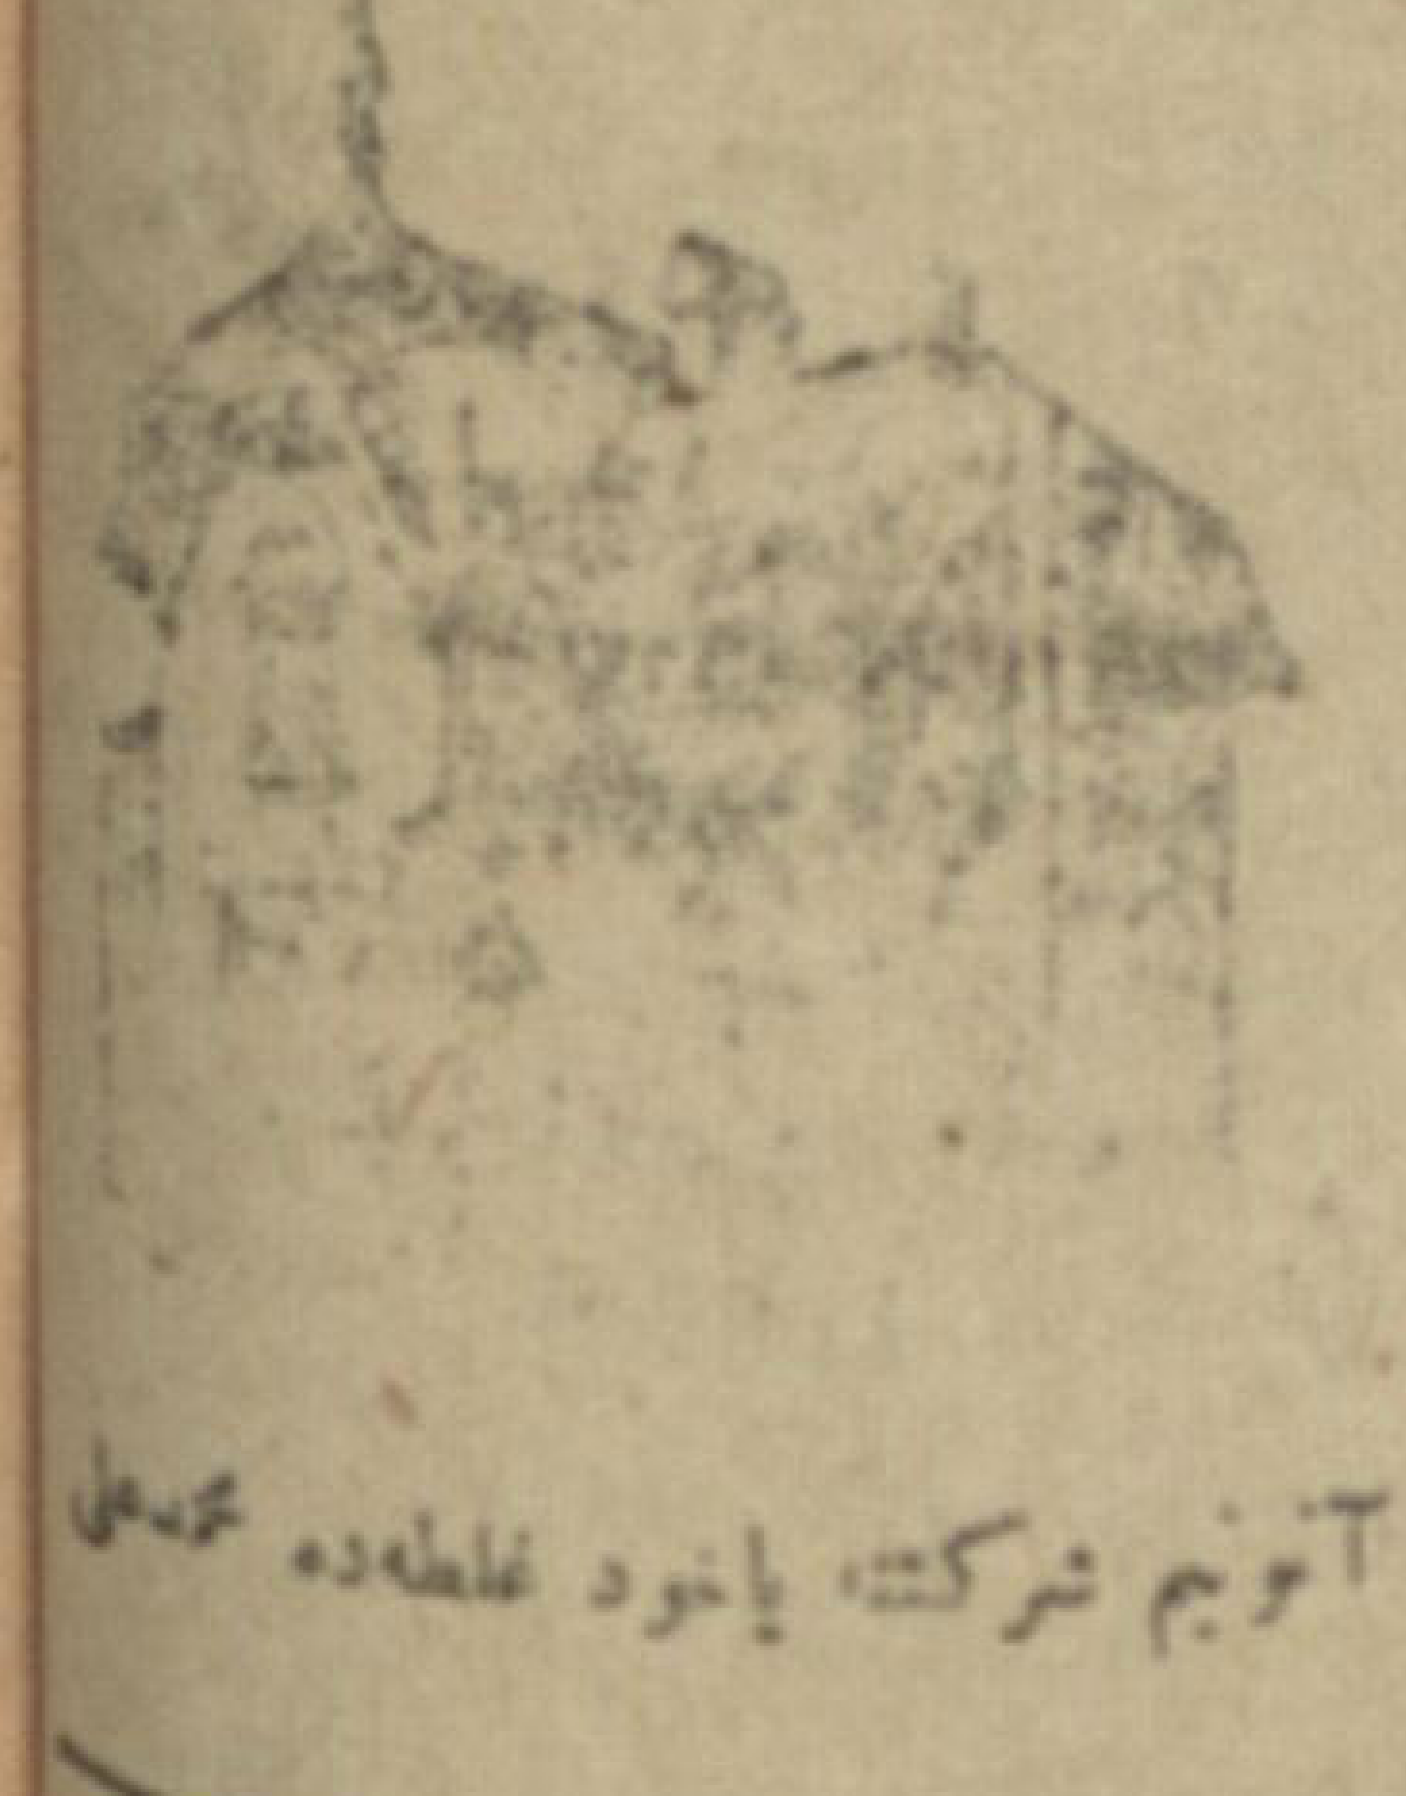 آنونیم شرکتنه یاخود غلطه‌ده محمد علی